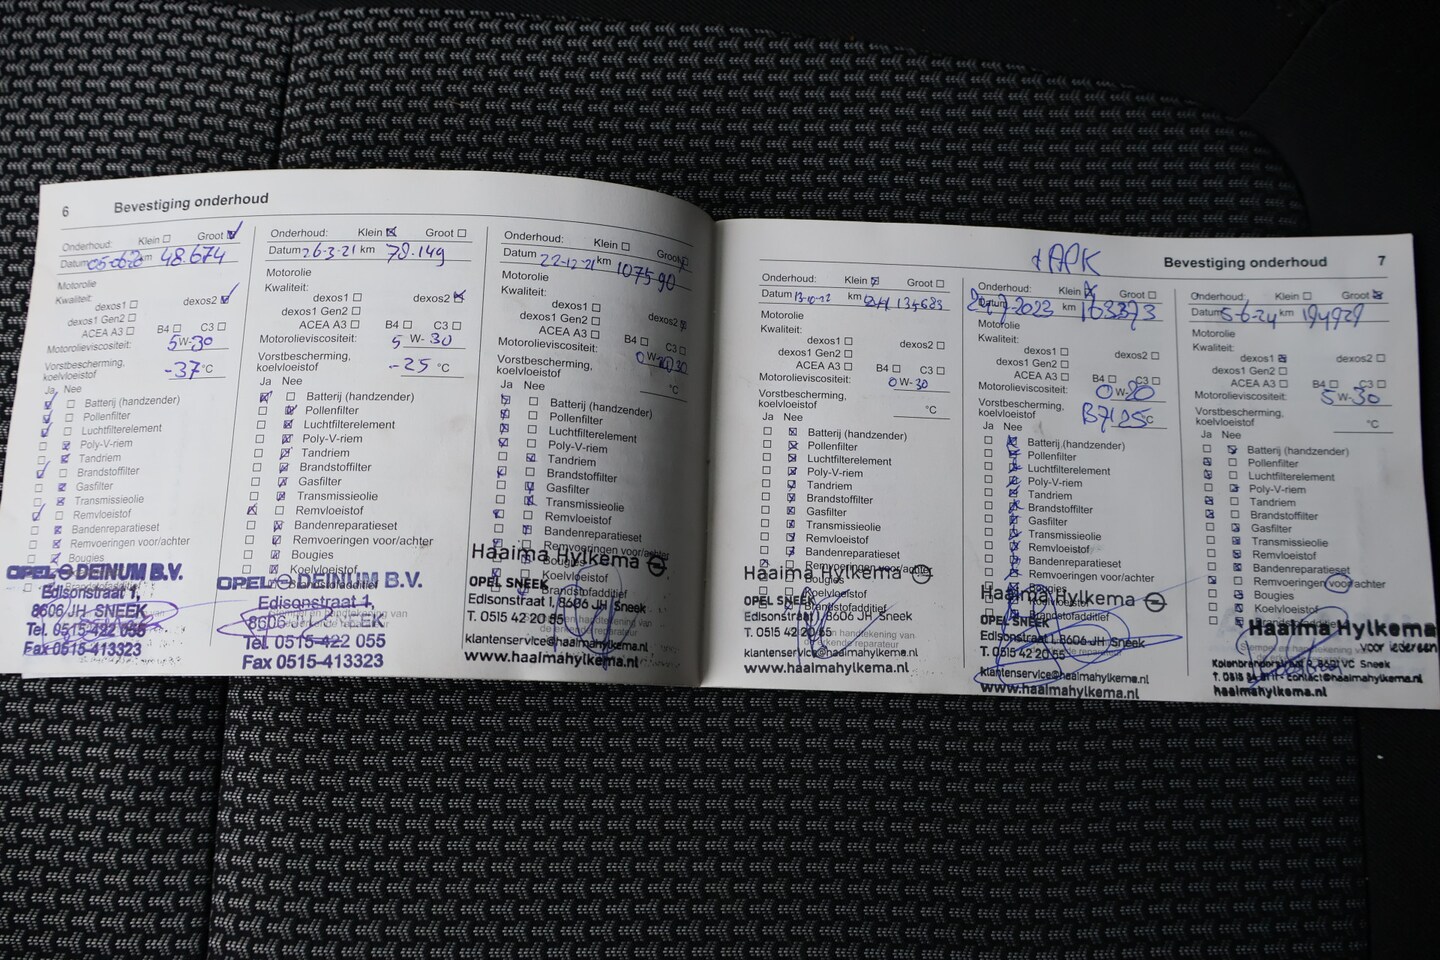 6 Bevestiging onderhoud
Onderhoud: Klein Groot
Datum 05-06-20 km 48.674
Motorolie
Kwaliteit:
dexos1 dexos2
dexos1 Gen2
ACEA A3 B4 C3
Motorolieviscositeit: 5 W-30
Vorstbescherming,
koelvloeistof -37 °C
Ja Nee
Batterij (handzender)
Pollenfilter
Luchtfilterelement
Poly-V-riem
Tandriem
Brandstoffilter
Gasfilter
Transmissieolie
Remvloeistof
Bandenreparatieset
Remvoeringen voor/achter
Bougies
OPEL DEINUM B.V.
Edisonstraat 1,
8606 JH SNEEK
Tel. 0515-422 055
Fax 0515-413323
Onderhoud: Klein Groot
Datum 26-3-21 km 78.149
Motorolie
Kwaliteit:
dexos1 dexos2
dexos1 Gen2
ACEA A3 B4 C3
Motorolieviscositeit: 5 W-30
Vorstbescherming,
koelvloeistof -25 °C
Ja Nee
Batterij (handzender)
Pollenfilter
Luchtfilterelement
Poly-V-riem
Tandriem
Brandstoffilter
Gasfilter
Transmissieolie
Remvloeistof
Bandenreparatieset
Remvoeringen voor/achter
Bougies
Koelvloeistof
OPEL DEINUM B.V.
Edisonstraat 1,
8606 JH SNEEK
Tel. 0515-422 055
Fax 0515-413323
Onderhoud: Klein Groot
Datum 22-12-21 km 107590
Motorolie
Kwaliteit:
dexos1 dexos2
dexos1 Gen2
ACEA A3 B4 C3
Motorolieviscositeit: 0 W-30
Vorstbescherming,
koelvloeistof °C
Ja Nee
Batterij (handzender)
Pollenfilter
Luchtfilterelement
Poly-V-riem
Tandriem
Brandstoffilter
Gasfilter
Transmissieolie
Remvloeistof
Bandenreparatieset
Remvoeringen voor/achter
Haaima Hylkema
Bougies
Koelvloeistof
OPEL SNEEK
Brandstofadditief
Edisonstraat 1, 8606 JH Sneek
T. 0515 42 20 55
klantenservice@haaimahylkema.nl
www.haaimahylkema.nl
+ APK
Bevestiging onderhoud 7
Onderhoud: Klein Groot
Datum 13-10-22 km 134683
Motorolie
Kwaliteit:
dexos1 dexos2
dexos1 Gen2
ACEA A3 B4 C3
Motorolieviscositeit: 0 W-30
Vorstbescherming,
koelvloeistof °C
Ja Nee
Batterij (handzender)
Pollenfilter
Luchtfilterelement
Poly-V-riem
Tandriem
Brandstoffilter
Gasfilter
Transmissieolie
Remvloeistof
Bandenreparatieset
Remvoeringen voor/achter
Haaima Hylkema
Bougies
Koelvloeistof
OPEL SNEEK
Brandstofadditief
Edisonstraat 1, 8606 JH Sneek
T. 0515 42 20 55
klantenservice@haaimahylkema.nl
www.haaimahylkema.nl
Onderhoud: Klein Groot
Datum 7-2023 km 163373
Motorolie
Kwaliteit:
dexos1 dexos2
dexos1 Gen2
ACEA A3 B4 C3
Motorolieviscositeit: 0 W-20
Vorstbescherming,
koelvloeistof °C
Ja Nee
Batterij (handzender)
Pollenfilter
Luchtfilterelement
Poly-V-riem
Tandriem
Brandstoffilter
Gasfilter
Transmissieolie
Remvloeistof
Bandenreparatieset
Remvoeringen voor/achter
Bougies
Haaima Hylkema
Koelvloeistof
Brandstofadditief
OPEL SNEEK
Edisonstraat 1, 8606 JH Sneek
T. 0515 42 20 55
klantenservice@haaimahylkema.nl
www.haaimahylkema.nl
Onderhoud: Klein Groot
Datum 5-6-24 km 194929
Motorolie
Kwaliteit:
dexos1 dexos2
dexos1 Gen2
ACEA A3 B4 C3
Motorolieviscositeit: 5 W-30
Vorstbescherming,
koelvloeistof °C
Ja Nee
Batterij (handzender)
Pollenfilter
Luchtfilterelement
Poly-V-riem
Tandriem
Brandstoffilter
Gasfilter
Transmissieolie
Remvloeistof
Bandenreparatieset
Remvoeringen voor/achter
Bougies
Koelvloeistof
Haaima Hylkema
voor iedereen
8601 VC Sneek
contact@haaimahylkema.nl
haaimahylkema.nl